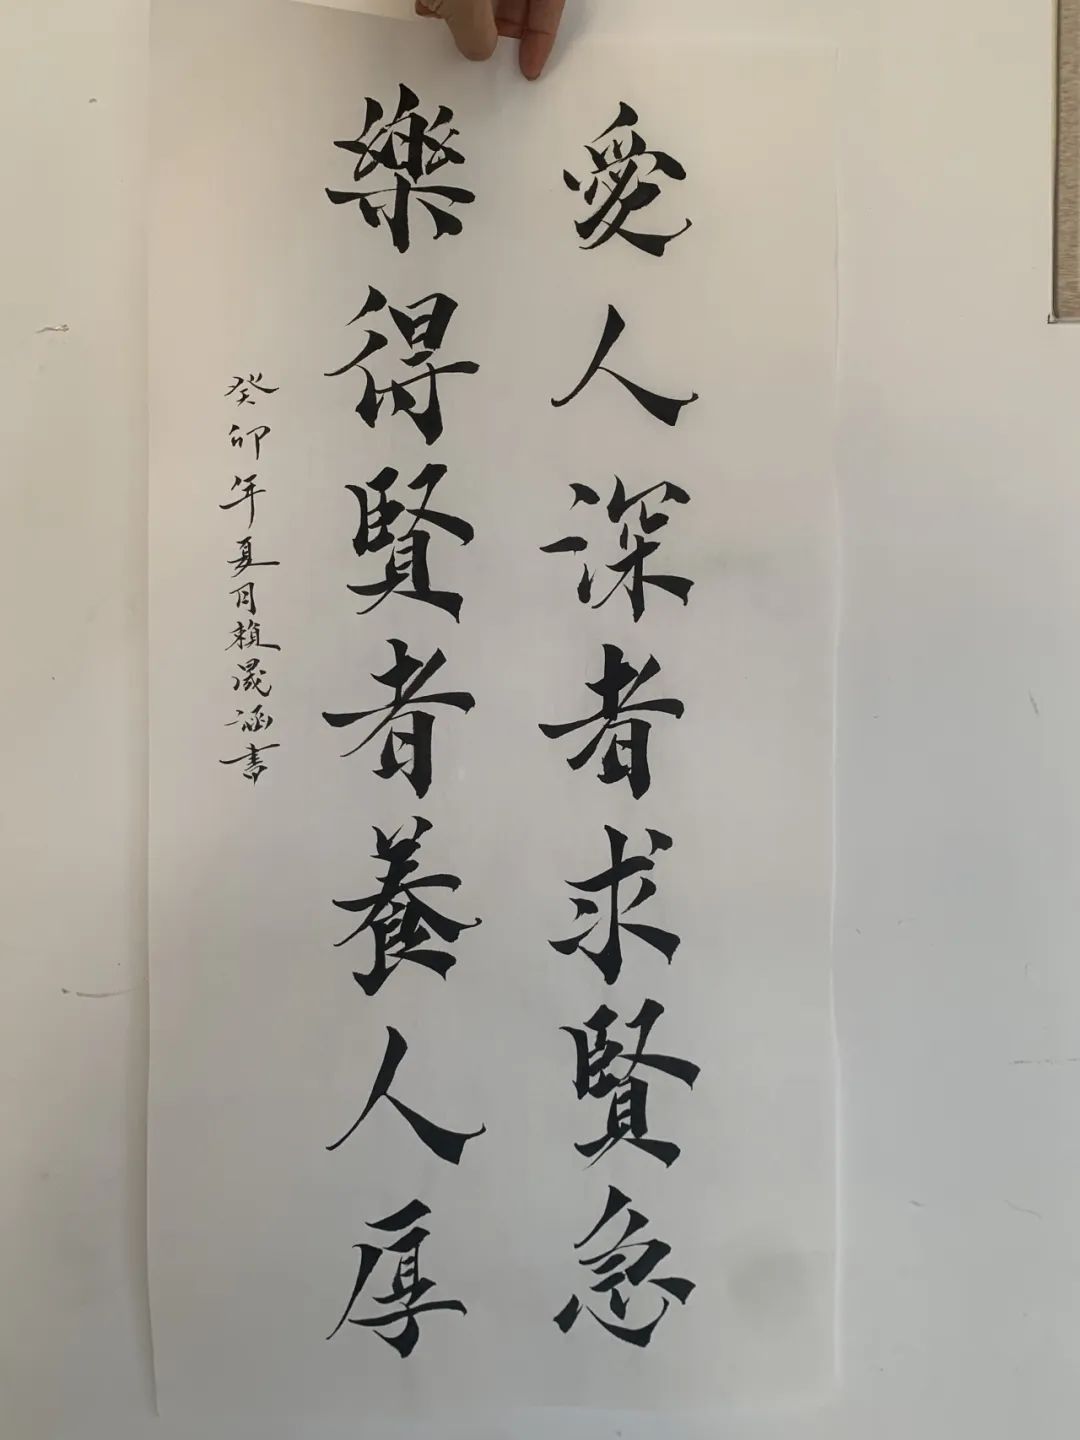 愛人深者求賢急
樂得賢者養人厚
癸卯年夏月賴晟涵書